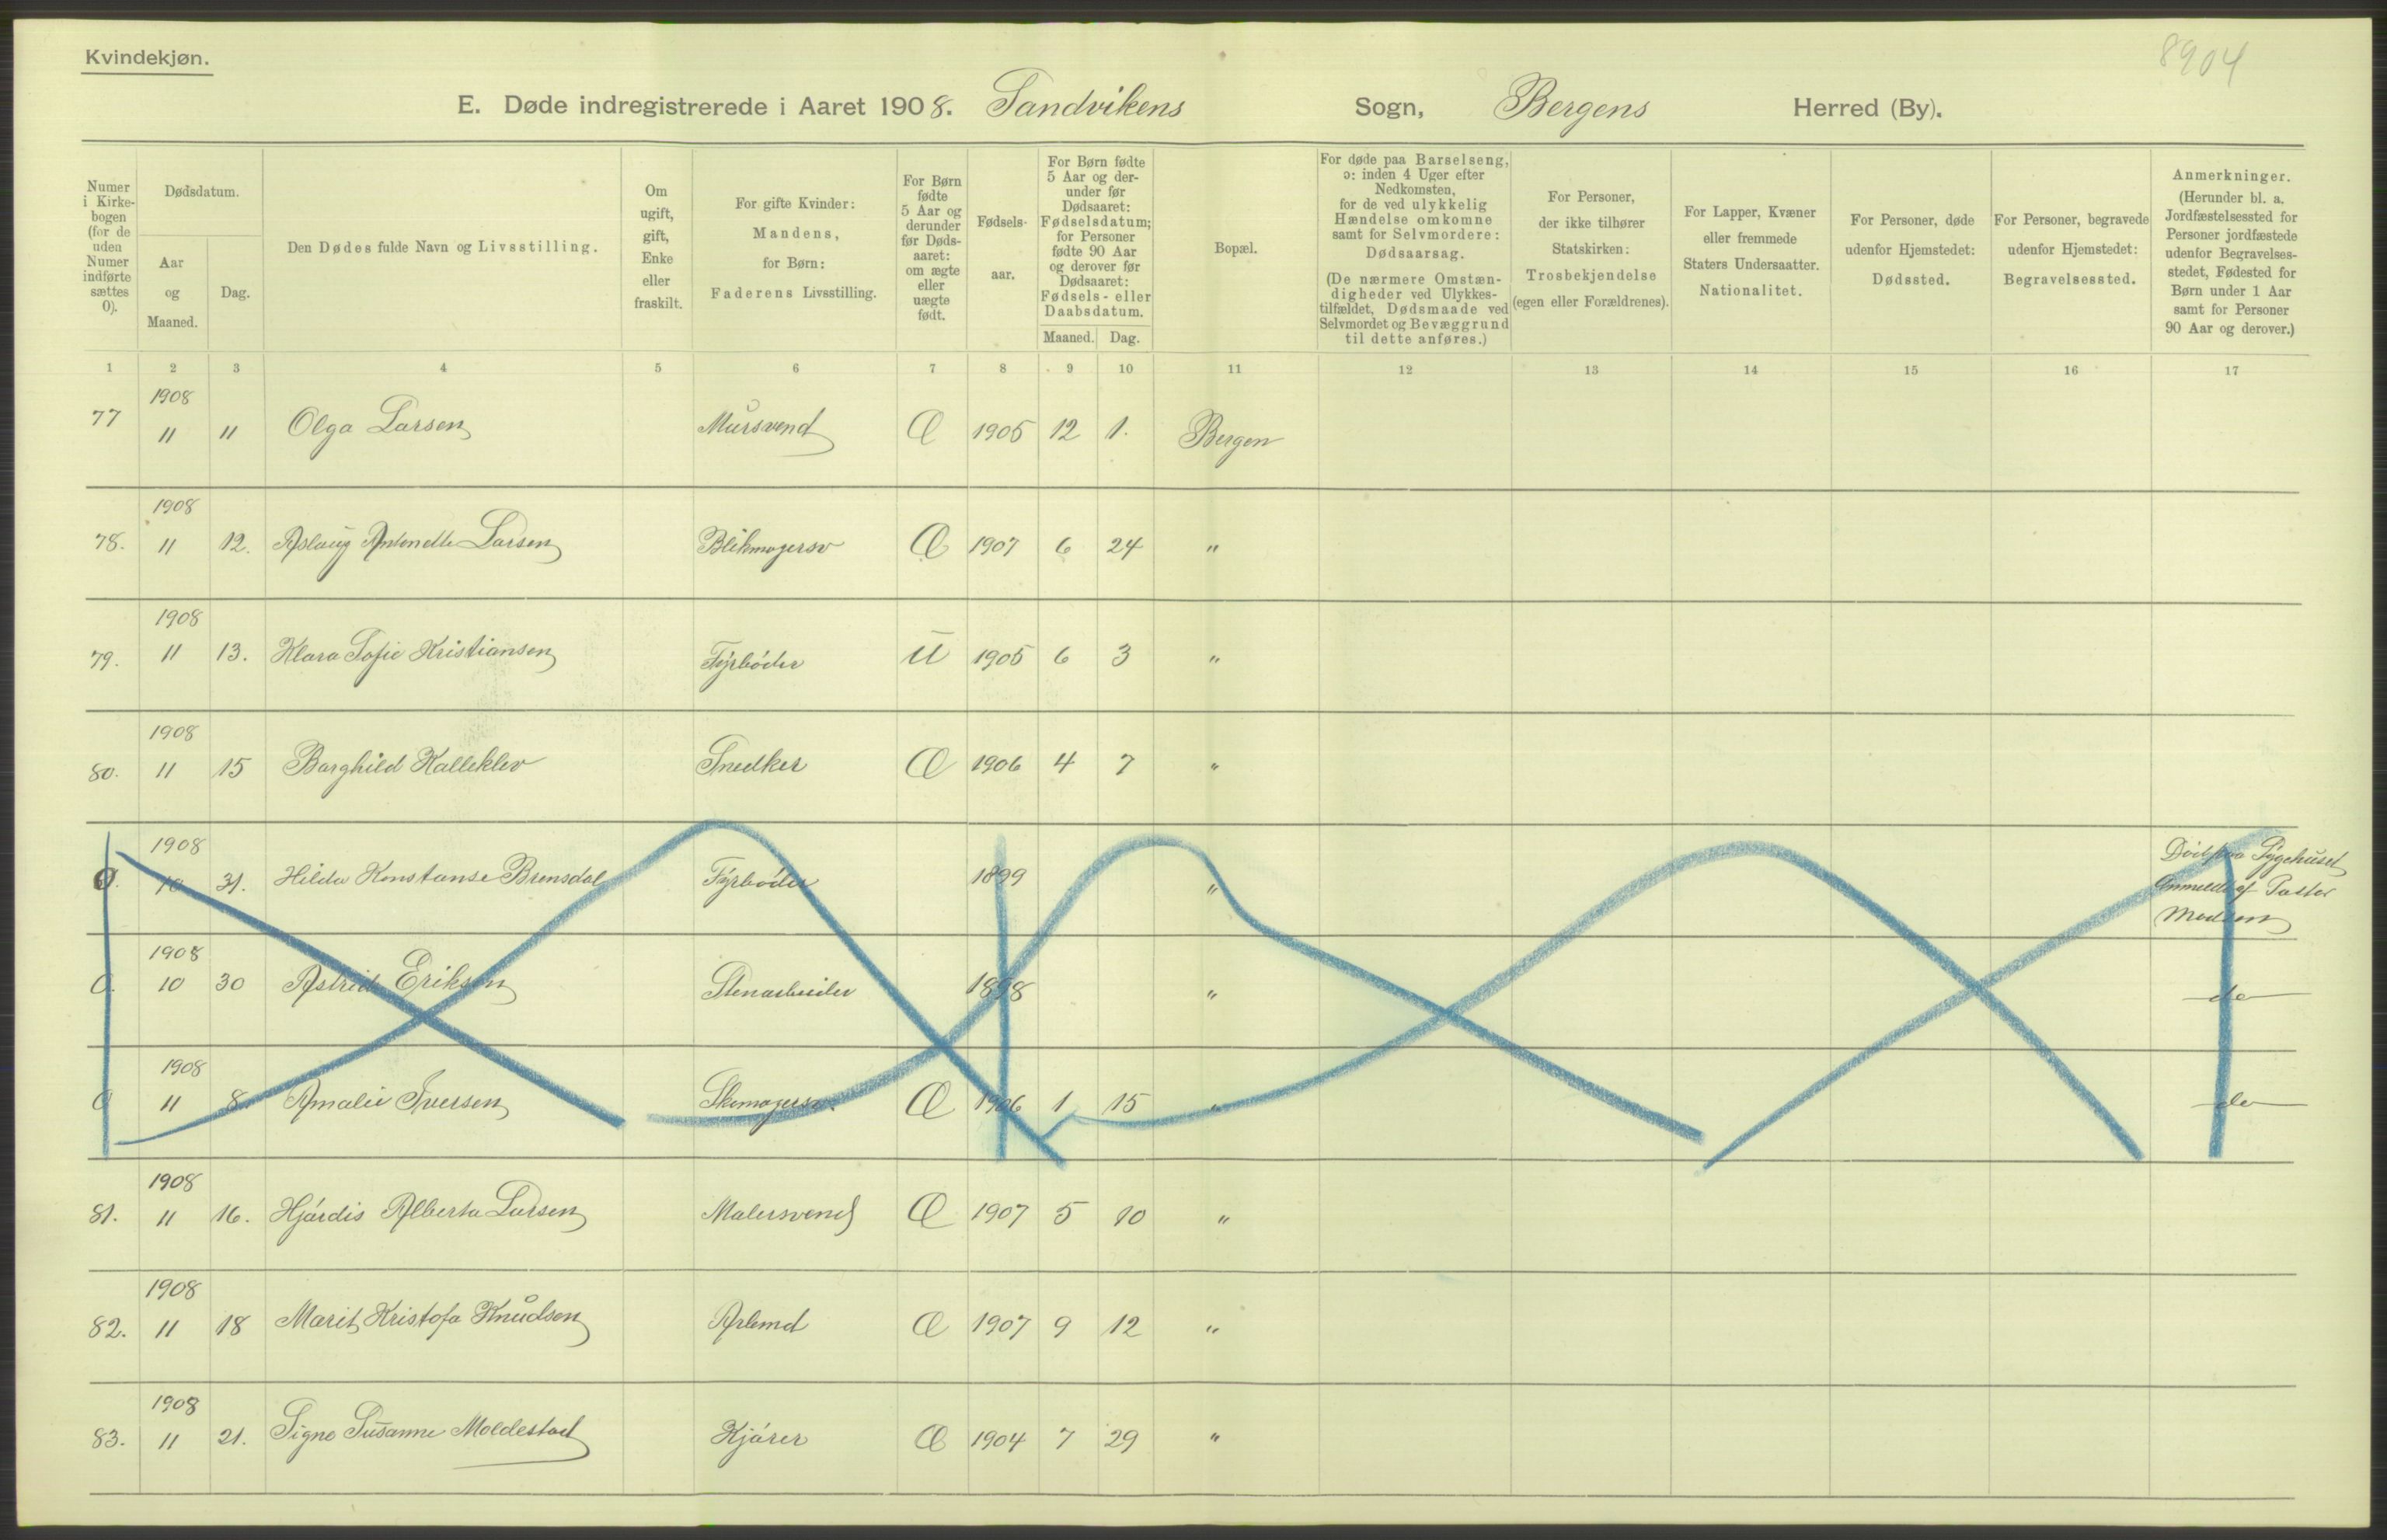 Kvindekjøn.
8904
E. Døde indregistrerede i Aaret 1908. Sandvikens Sogn, Bergens Herred (By).
Numer i Kirke-bogen (for de uden Numer indførte sættes 0).
Dødsdatum.
Aar og Maaned.
Dag.
Den Dødes fulde Navn og Livsstilling.
Om ugift, gift, Enke eller fraskilt.
For gifte Kvinder: Mandens, for Børn: Faderens Livsstilling.
For Børn fødte 5 Aar og derunder før Døds-aaret: om ægte eller uægte født.
Fødsels-aar.
For Børn fødte 5 Aar og der-under før Dødsaaret: Fødselsdatum; for Personer fødte 90 Aar og derover før Dødsaaret: Fødsels- eller Daabsdatum.
Maaned. Dag.
Bopæl.
For døde paa Barselseng, ɔ: inden 4 Uger efter Nedkomsten, for de ved ulykkelig Hændelse omkomne samt for Selvmordere: Dødsaarsag.
(De nærmere Omstæn-digheder ved Ulykkes-tilfældet, Dødsmaade ved Selvmordet og Bevæggrund til dette anføres.)
For Personer, der ikke tilhører Statskirken: Trosbekjendelse (egen eller Forældrenes).
For Lapper, Kvæner eller fremmede Staters Undersaatter. Nationalitet.
For Personer, døde udenfor Hjemstedet: Dødssted.
For Personer, begravede udenfor Hjemstedet: Begravelsessted.
Anmerkninger. (Herunder bl. a. Jordfæstelsessted for Personer jordfæstede udenfor Begravelses-stedet, Fødested for Børn under 1 Aar samt for Personer 90 Aar og derover.)
1 2 3 4 5 6 7 8 9 10 11 12 13 14 15 16 17
77 1908 11 11 Olga Larsen Mursvend Æ 1905 12 1. Bergen
78. 1908 11 12. Aslaug Antonette Larsen Blikmagersv Æ 1907 6 24 "
79. 1908 11 13. Klara Sofie Kristiansen Fyrbøder U 1905 6 3 "
80. 1908 11 15 Borghild Kalleklev Snedker Æ 1906 4 7 "
0. 1908 10 31. Hilda Konstanse Brensdal Fyrbøder 1899 " Død paa Sygehuset Anmeldt af Pastor Madsen
0. 1908 10 30 Astrid Eriksen Stenarbeider 1898 " do
0 1908 11 8. Amalie Iversen Skomagersv. Æ 1906 1 15 " do
81. 1908 11 16. Hjørdis Alberta Larsen Malersvend Æ 1907 5 10 "
82. 1908 11 18 Marit Kristofa Knudsen Arbmd Æ 1907 9 12 "
83. 1908 11 21. Signe Susanne Moldestad Kjører Æ 1904 7 29 "